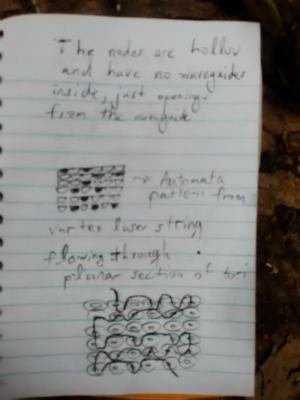 The nodes are hollow
and have no waveguides
inside, just openings
from the waveguide
→ Automata
pattern from
vortex laser string
flowing through
planar section of tori